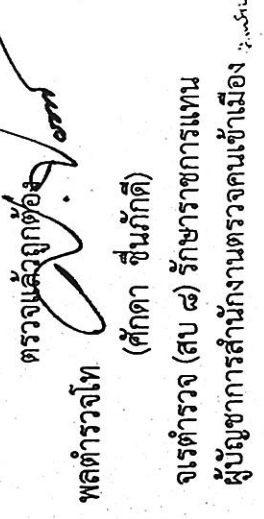 ตรวจแล้วถูกต้อง
พลตำรวจโท
(ศักดา ชื่นภักดี)
จเรตำรวจ (สบ ๘) รักษาราชการแทน
ผู้บัญชาการสำนักงานตรวจคนเข้าเมือง